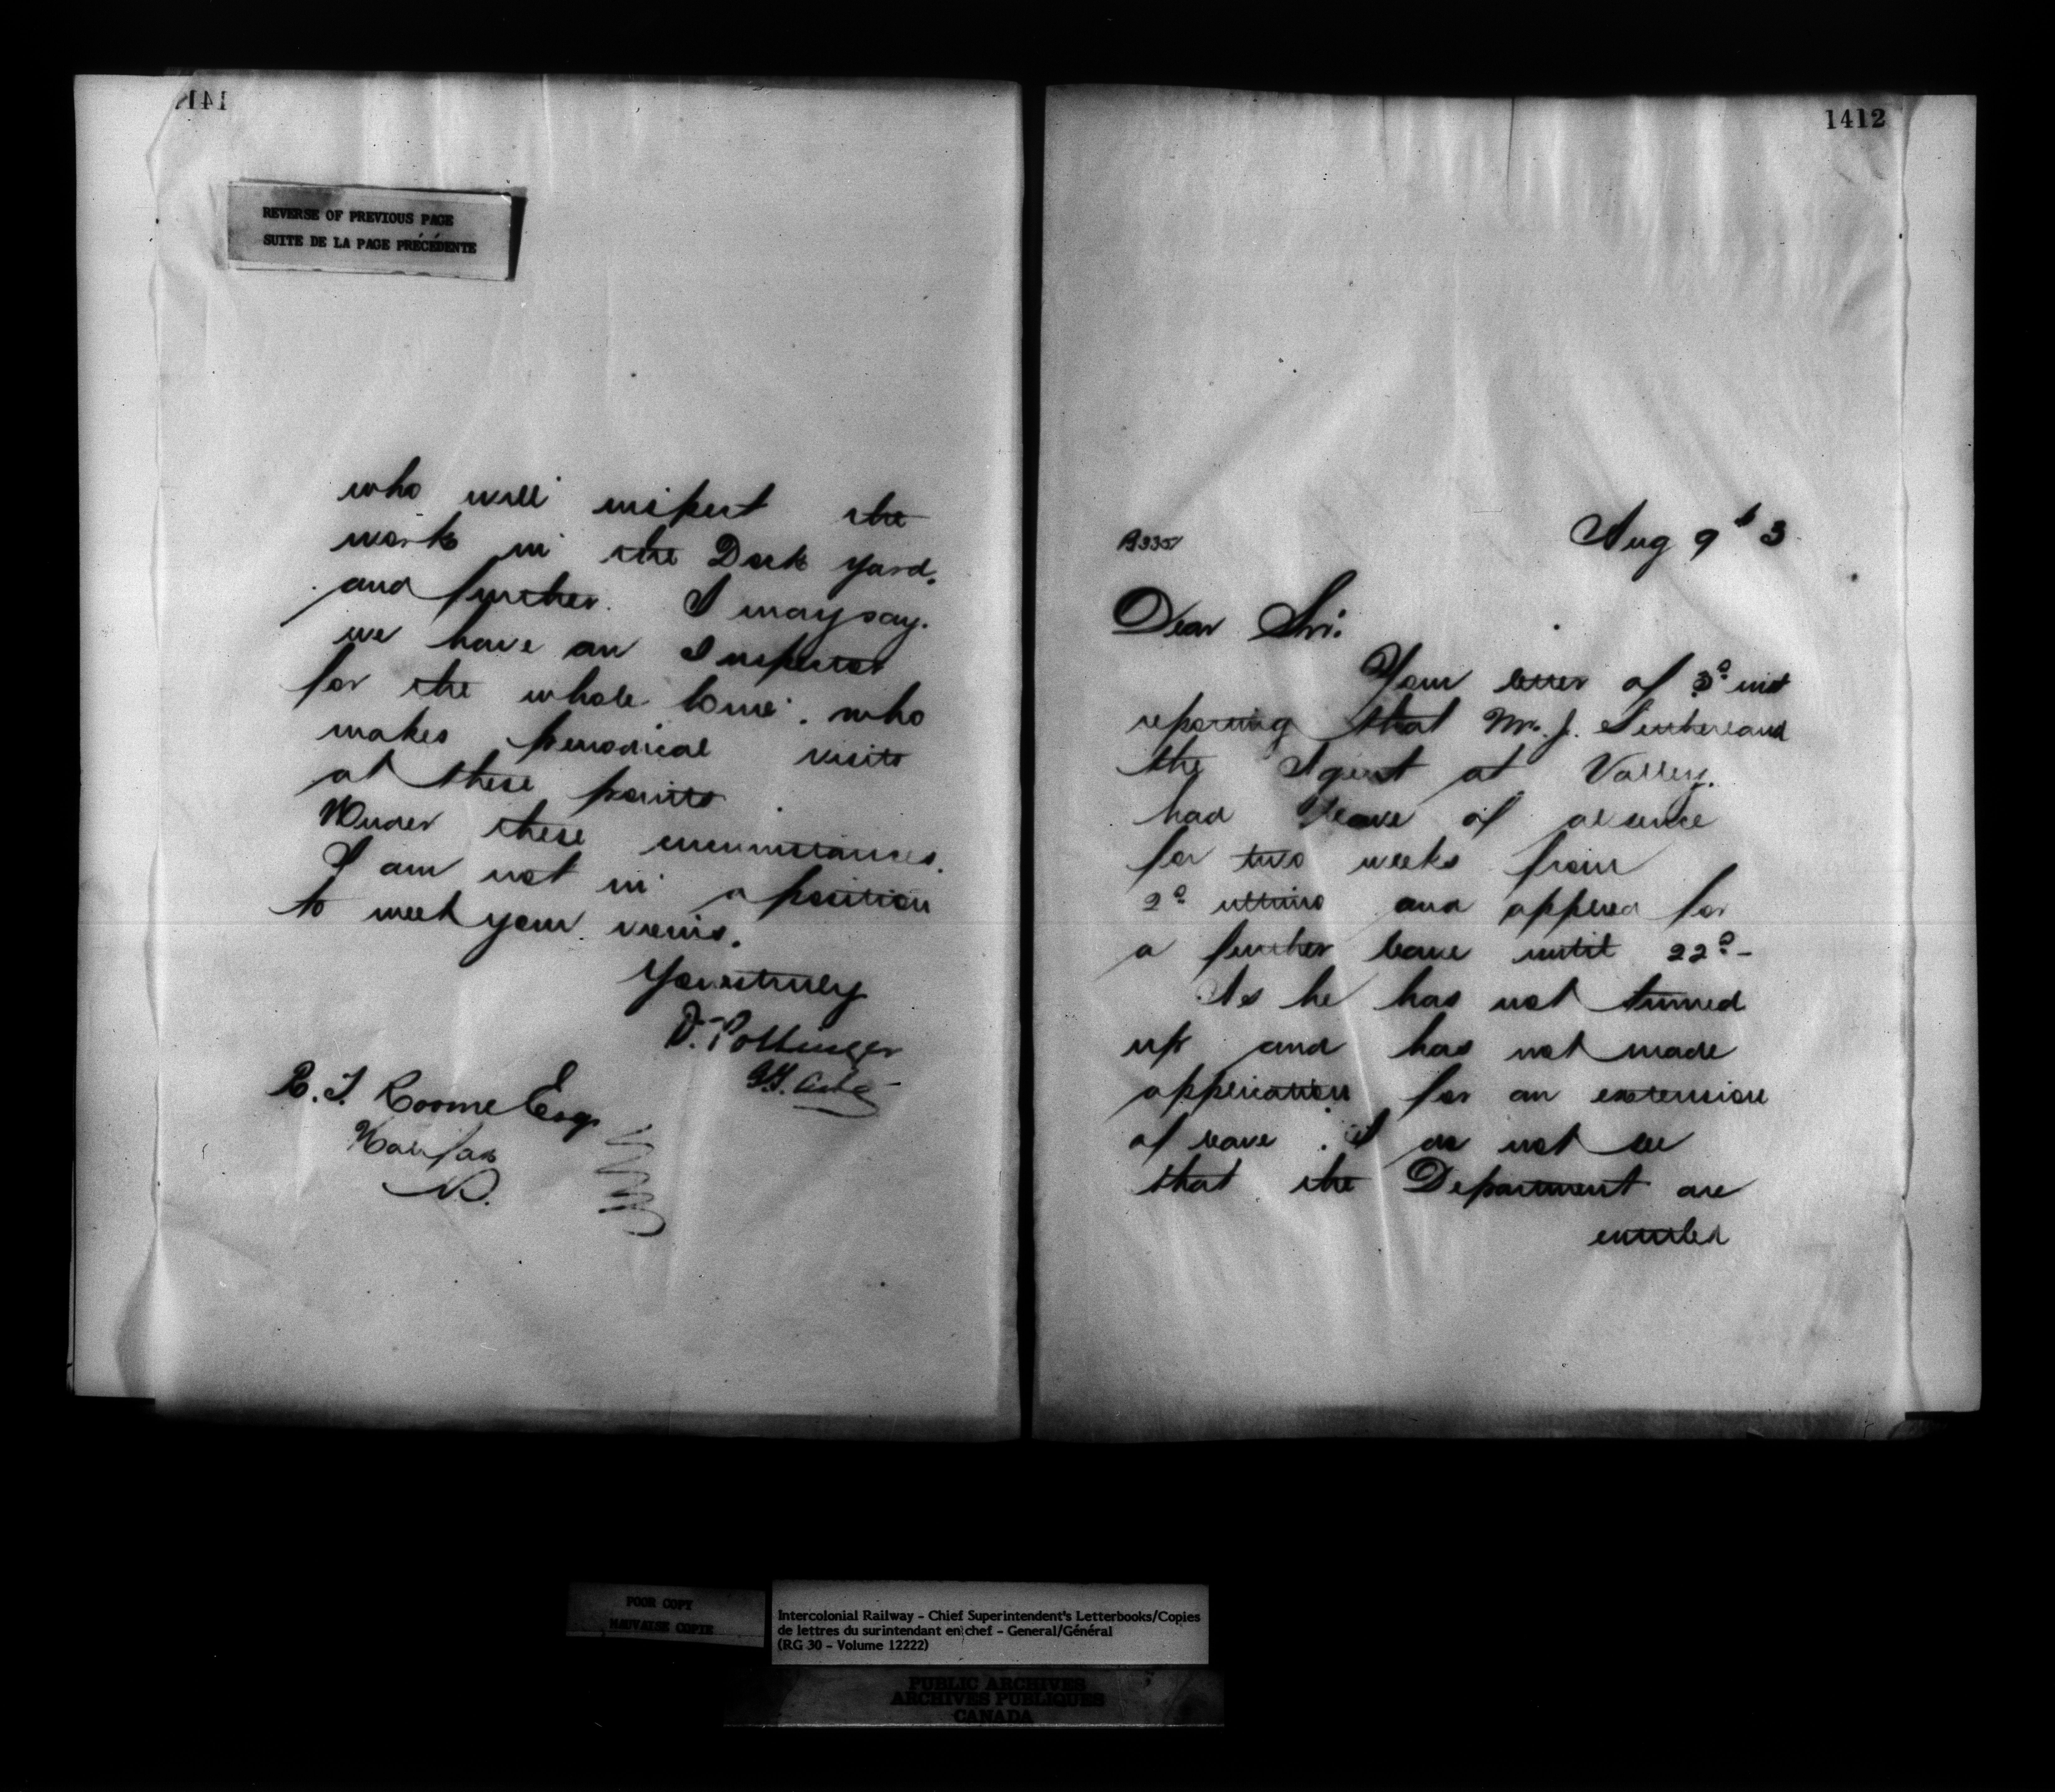 REVERSE OF PREVIOUS PAGE
SUITE DE LA PAGE PRÉCÉDENTE
who will inspect the
work in the Dock yard,
and further. I may say.
we have an Inspector
for the whole line. who
makes periodical visits
at these points.
Under these circumstances.
I am not in a position
to meet your views.
Yours truly
D. Pottinger
Roome Esq.
Halifax
1412
Aug 9th 3
Dear Sir.
Your letter of 3d inst
reporting that Mr. J. Sutherland
the Agent at Valley.
had leave of absence
for two weeks from
2d ultimo and applied for
a further leave until 22d -
As he has not turned
up and has not made
application for an extension
of leave. I do not see
that the Department are
entitled
POOR COPY
MAUVAISE COPIE
Intercolonial Railway - Chief Superintendent's Letterbooks/Copies
de lettres du surintendant en chef - General/Général
(RG 30 - Volume 12222)
PUBLIC ARCHIVES
ARCHIVES PUBLIQUES
CANADA